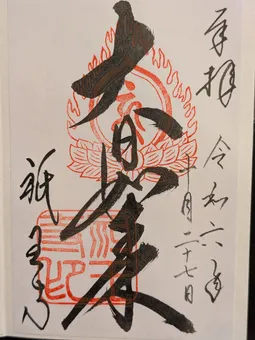 奉拝
令和六年
十月二十七日
大日如来
祇王寺